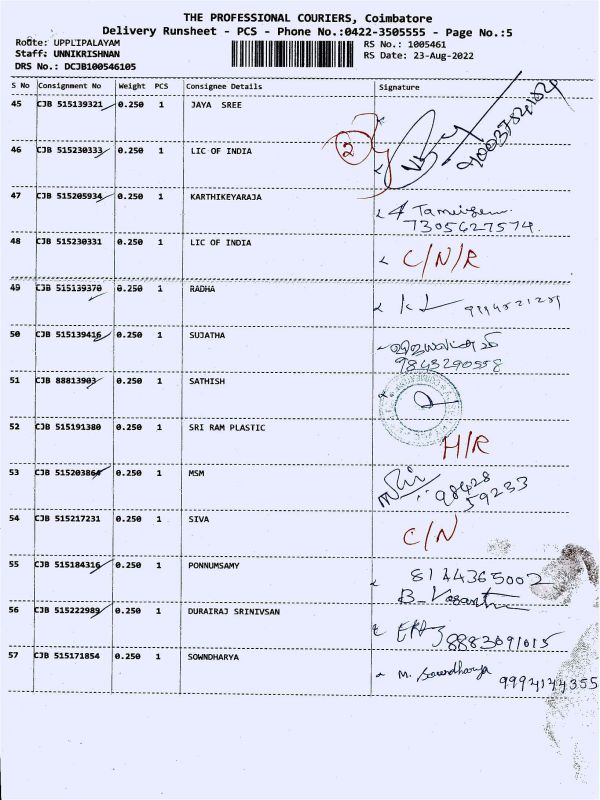 THE PROFESSIONAL COURIERS, Coimbatore
Delivery Runsheet - PCS - Phone No.:0422-3505555 - Page No.:5
Route: UPPLIPALAYAM
RS No.: 1005461
Staff: UNNIKRISHNAN
RS Date: 23-Aug-2022
DRS No.: DCJB100546105
S No Consignment No Weight PCS Consignee Details Signature
45 CJB 515139321 0.250 1 JAYA SREE
46 CJB 515230333 0.250 1 LIC OF INDIA 2
47 CJB 515205934 0.250 1 KARTHIKEYARAJA
7305627574.
48 CJB 515230331 0.250 1 LIC OF INDIA C/N/R
49 CJB 515139370 0.250 1 RADHA
50 CJB 515139416 0.250 1 SUJATHA
9843290558
51 CJB 88813903 0.250 1 SATHISH
52 CJB 515191380 0.250 1 SRI RAM PLASTIC H/R
53 CJB 515203864 0.250 1 MSM 98428
59233
54 CJB 515217231 0.250 1 SIVA C/N
55 CJB 515184316 0.250 1 PONNUMSAMY 8144365002
56 CJB 515222989 0.250 1 DURAIRAJ SRINIVSAN 8883091015
57 CJB 515171854 0.250 1 SOWNDHARYA M. Sowndharya 9994144355